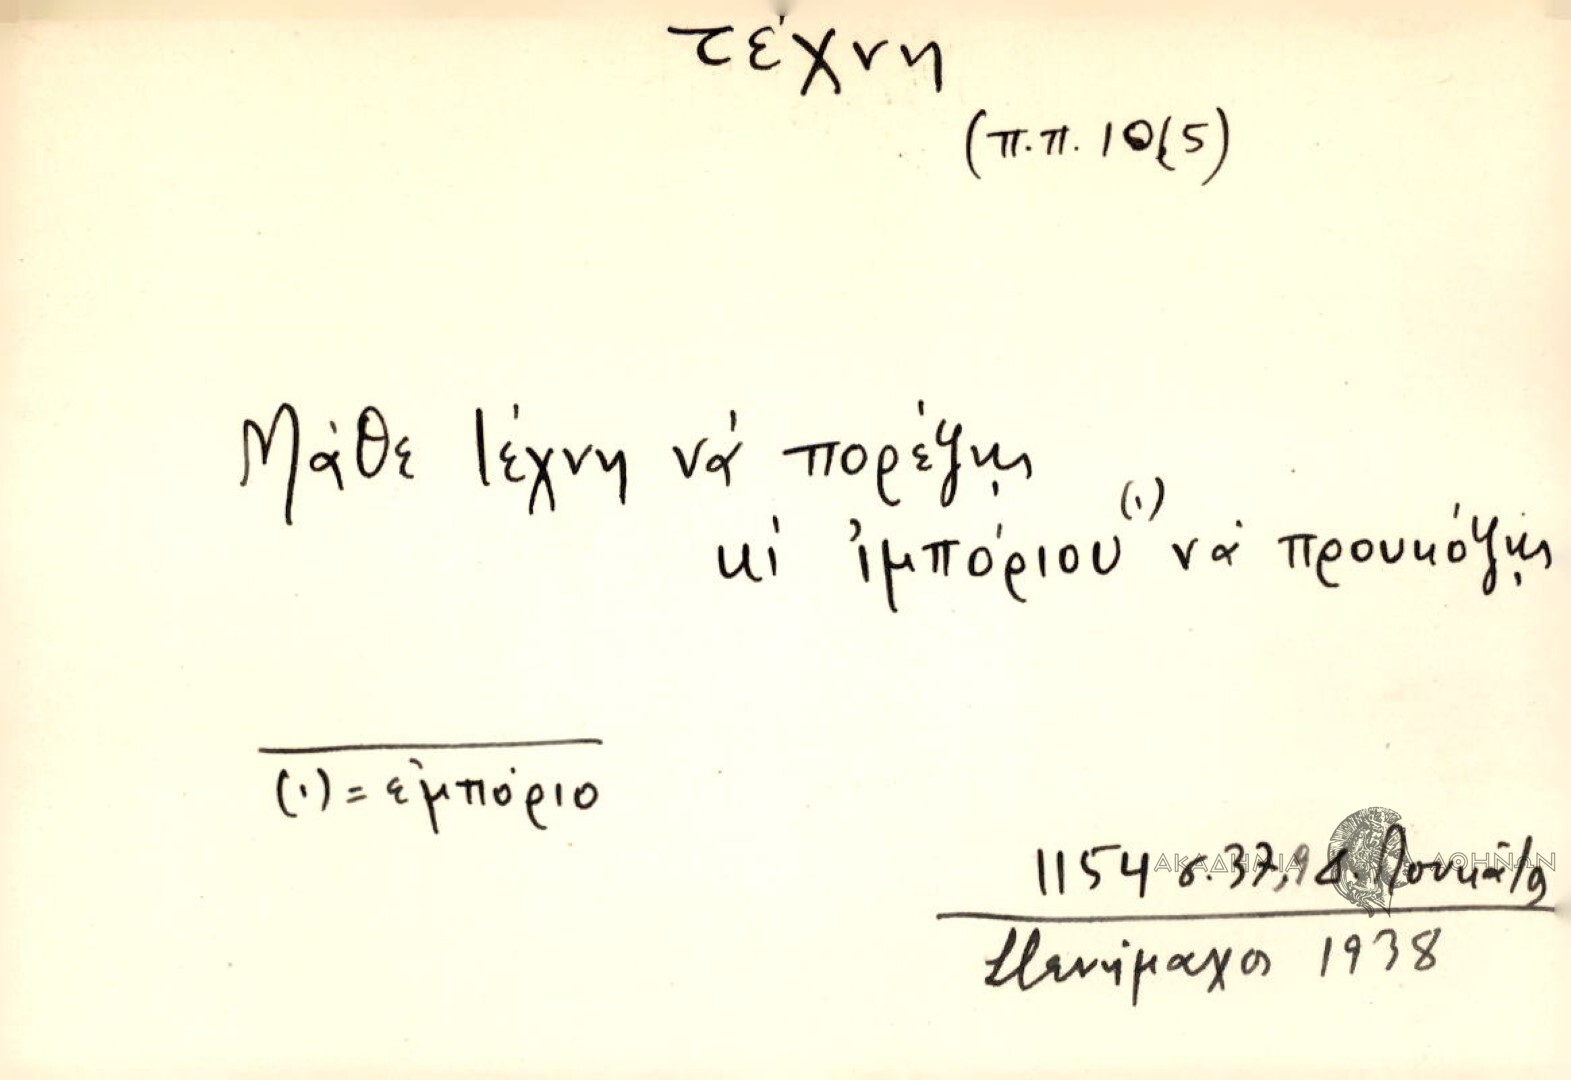 τέχνη
(π.π. 10(5)
Μάθε τέχνη νά πορέψῃς
κί ἰμπόριου (1) νά προυκόψῃς
(1) = ἐμπόριο
1154 σ. 37, Δ. Λουκά/
ΑΚΑΔΗΜΙΑ ΑΘΗΝΩΝ
Στενήμαχος 1938